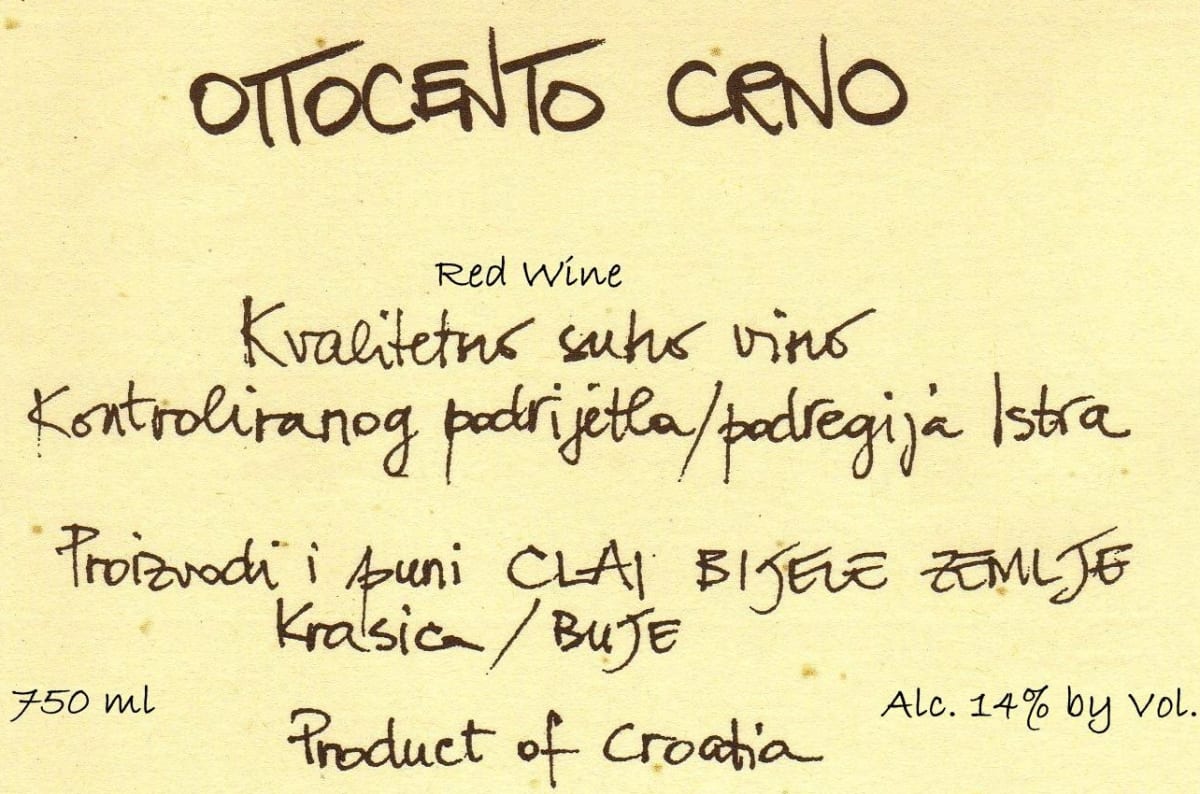 OTTOCENTO CRNO
Red Wine
Kvalitetno suho vino
Kontroliranog podrijetla/podregija Istra
Proizvodi i puni CLAI BIJELE ZEMLJE
Krasica / BUJE
750 ml
Alc. 14% by Vol.
Product of Croatia